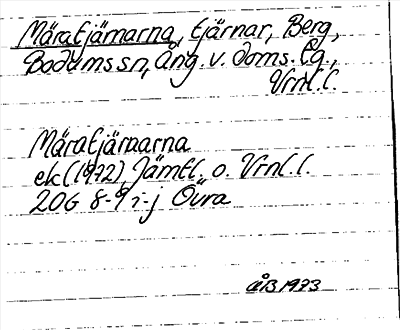 Märatjärnarna, tjärnar, Berg,
Bodums sn, Ång. v. doms. lg.,
Vrnl. l.
Märatjärnarna
ek (1972) Jämtl. o. Vrnl. l.
20G 8-9 i-j Övra
GÅB 1973